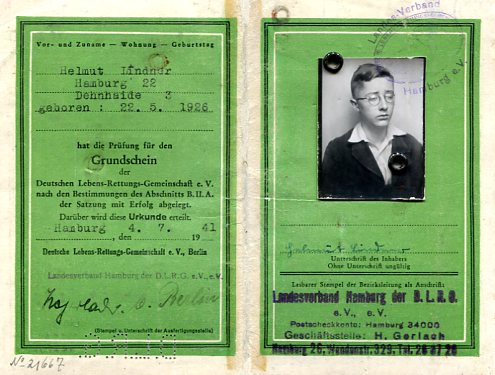 Vor- und Zuname — Wohnung — Geburtstag
Helmut Lindner
Hamburg 22
Dehnhaide 3
geboren : 22. 5. 1926
hat die Prüfung für den
Grundschein
der
Deutschen Lebens-Rettungs-Gemeinschaft e. V.
nach den Bestimmungen des Abschnitts B.II.A.
der Satzung mit Erfolg abgelegt.
Darüber wird diese Urkunde erteilt.
Hamburg 4. 7. 41
, den 19
Deutsche Lebens-Rettungs-Gemeinschaft e. V., Berlin
Landesverband Hamburg der D.L.R.G. e.V., e.V.
(Stempel u. Unterschrift der Ausfertigungsstelle)
No 21667
Landes-Verband
Hamburg e.V.
Helmut Lindner
Unterschrift des Inhabers
Ohne Unterschrift ungültig
Lesbarer Stempel der Bezirksleitung als Anschrift:
Landesverband Hamburg der D.L.R.G.
e.V., e.V.
Postscheckkonto: Hamburg 34000
Geschäftsstelle: H. Gerlach
Hamburg 26, 329. Tel.